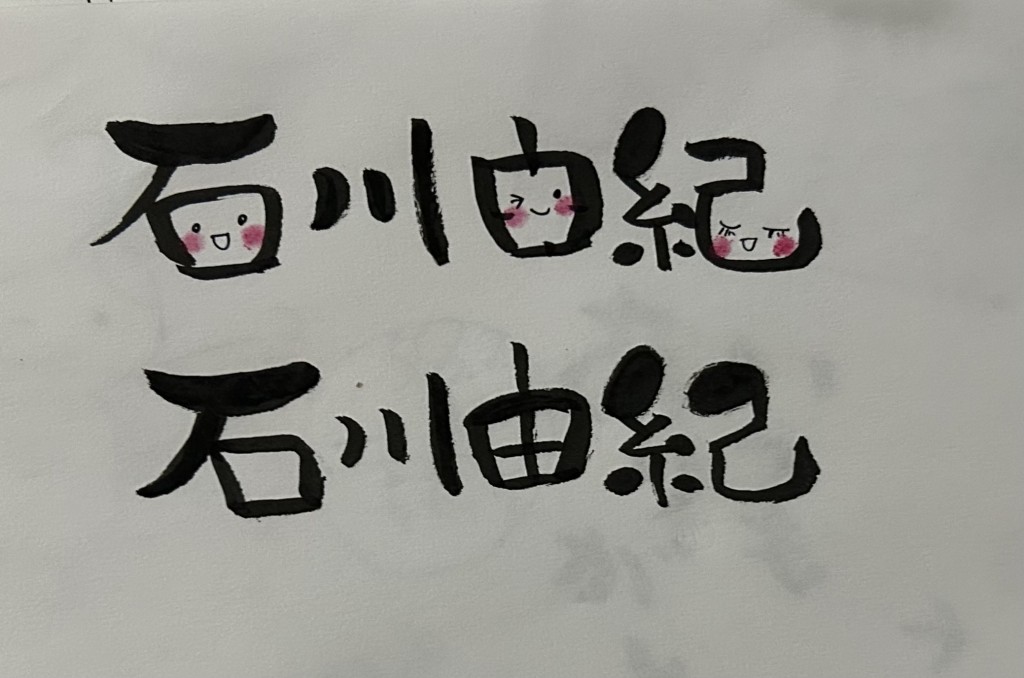 石川由紀
石川由紀